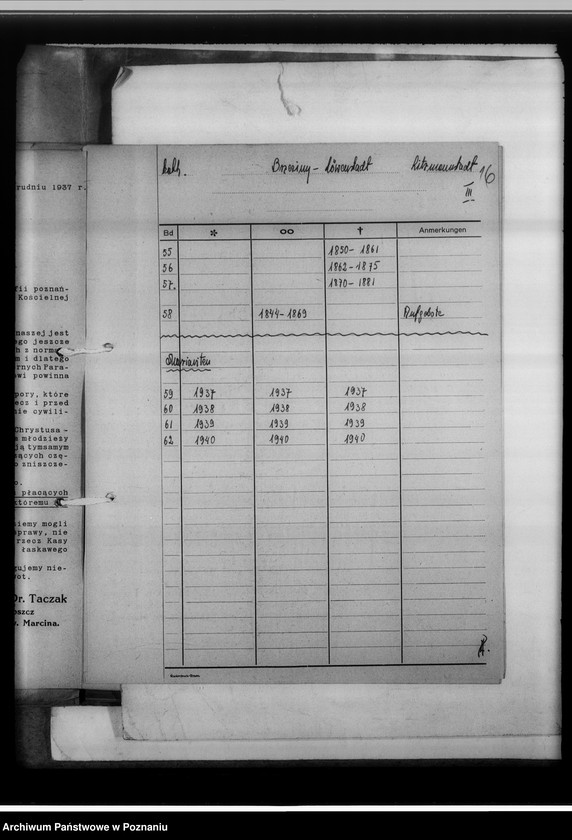 rudniu 1937 r.
fii poznań-
Kościelnej
naszej jest
ego jeszcze
h z norm
m i dlatego
rnych Para-
wi powinna
pory, które
ecz i przed
nie cywili-
Chrystusa -
a młodzieży
ją tymsamym
ących czę-
o zniszcze-
o.
płacących
któremu
iemy mogli
sprawy, nie
rzecz Kasy
łaskawego
gujemy nie-
wot.
Dr. Taczak
oszcz
w. Marcina.
kath. Brzeziny - Löwenstadt Litzmannstadt 16
III
Bd * oo † Anmerkungen
55 1850 - 1861
56 1862 - 1875
57. 1870 - 1881
58 1844 - 1869 Aufgebote
Mariaviten
59 1937 1937 1937
60 1938 1938 1938
61 1939 1939 1939
62 1940 1940 1940
Archiwum Państwowe w Poznaniu